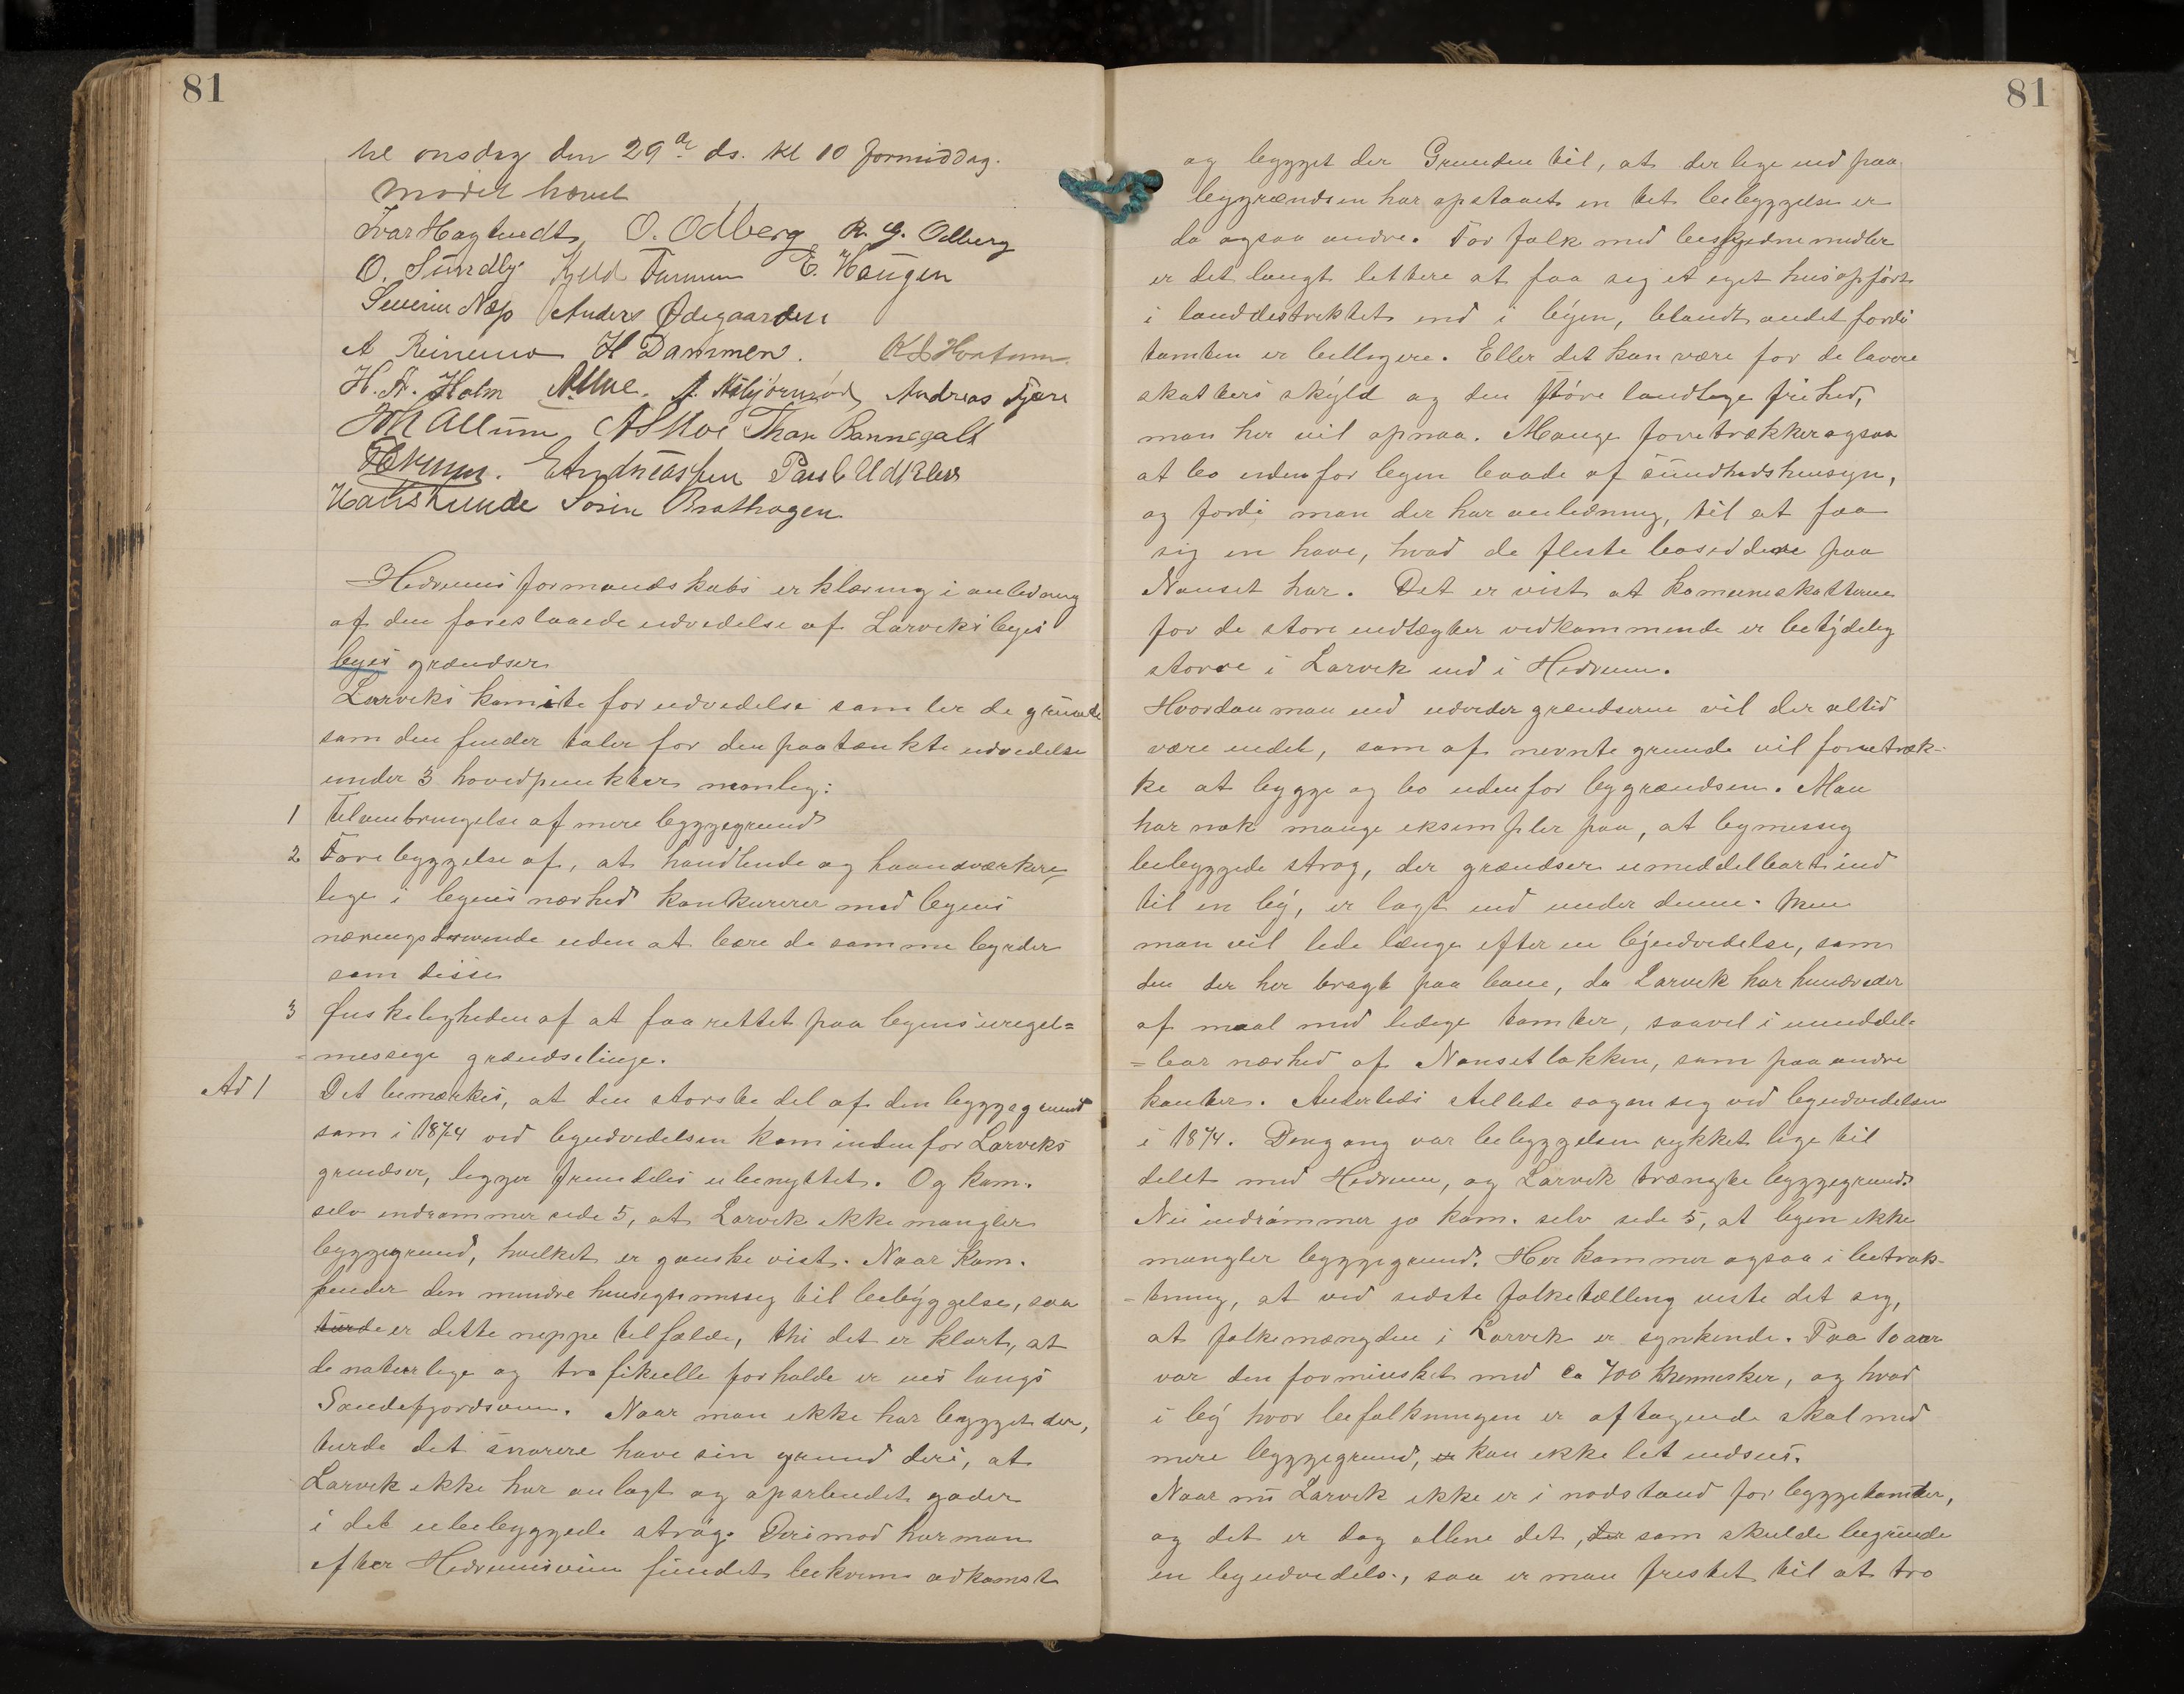 81
til onsdag den 29de ds. kl 10 formiddag.
Mødet hævet
Ivar Hagtvedt, O. Odberg R. G. Odberg
O. Sundby Kjeld Furum E. Haugen
Severin Næs Anders Ødegaarden
A H Dammen.
H. A. Holm A. Moe. A. Asbjørnrød, Andreas Fjære
M Allum, A S Moe Thor Bonnegolt
E Andreassen Paul Udklev
Hans Lunde Søren Brathagen
Hedrums formandskabs erklæring i anledning
af den foreslaaede udvidelse af Larviks byes
byes grændser
Larviks komite for udvidelse samler de grunde
som den finder taler for den paatænkte udvidelse
under 3 hovedpunkter nemlig:
1 Tilveiebringelse af mere byggegrund
2 Forebyggelse af, at handlende og haandværkere
lige i byens nærhed konkurerer med byens
næringsdrivende uden at bære de samme byrder
som disse
3 Ønskeligheden af at faa rettet paa byens uregel=
=messige grændselinje.
Ad 1 Det bemærkes, at den største del af den byggegrund
som i 1874 ved byudvidelsen kom indenfor Larviks
grendser, ligger fremdeles ubenyttet. Og kom.
selv indrømmer side 5, at Larvik ikke mangler
byggegrund, hvilket er ganske vist. Naar kom.
finder den mindre hensigtsmessig til bebyggelse, saa
turde er dette neppe tilfælde, thi det er klart, at
de naturlige og trafikuelle forholde er ues langs
Sandefjordsveien. Naar man ikke har bygget der,
turde det snarere have sin grund deri, at
Larvik ikke har anlagt og oparbeidet gader
i det ubebyggede strøg. Derimod har man
efter Hedrumsveien fundet bekvem adkomst
81
og bygget der Grunden til, at der lige ind paa
bygrændsen har opstaaet en tet bebyggelse er
da ogsaa andre. For folk med beskjedne midler
er det langt lettere at faa sig et eget hus opført
i landdistriktet end i byen, blandt andet fordi
tomten er billigere. Eller det kan være for de lavere
skatters skyld og den større landlige frihed,
man her vil opnaa. Mange foretrækker ogsaa
at bo udenfor byen baade af sundhedshensyn,
og fordi man der har anledning, til at faa
sig en have, hvad de fleste besiddere paa
Nanset har. Det er vist at komuneskatterne
for de store indtægter vedkommende er betydelig
større i Larvik end i Hedrum.
Hvordan man end udvider grændserne vil der altid
være endel, som af nevnte grunde vil foretræk-
ke at bygge og bo udenfor bygrændsen. Man
har nok mange eksempler paa, at bymessig
bebyggede strøg, der grændser umiddelbart ind
til en by, er lagt ind under denne. Men
man vil lede længe efter en byudvidelse, som
den der her bragt paa bane, da Larvik har hundreder
af maal med ledige tomter, saavel i umiddel=
=bar nærhed af Nansetløkken, som paa andre
kanter. Anderledes stillede sagen sig ved byudvidelsen
i 1874. Dengang var bebyggelsen rykket lige til
delet med Hedrum, og Larvik trængte byggegrund.
Nu indrømmer jo kom. selv side 5, at byen ikke
mangler byggegrund. Her kommer ogsaa i betrak-
-tning, at ved sidste folketælling viste det sig,
at folkemængden i Larvik er synkende. Paa 10 aar
var den formindsket med ca 700 Mennesker, og hvad
i by hvor befolkningen er aftagende skal med
mere byggegrund, er kan ikke let indsees.
Naar nu Larvik ikke er i nødstand for byggetomter,
og det er dog allene det, der som skulde begrunde
en byudvidelse, saa er man fristet til at tro